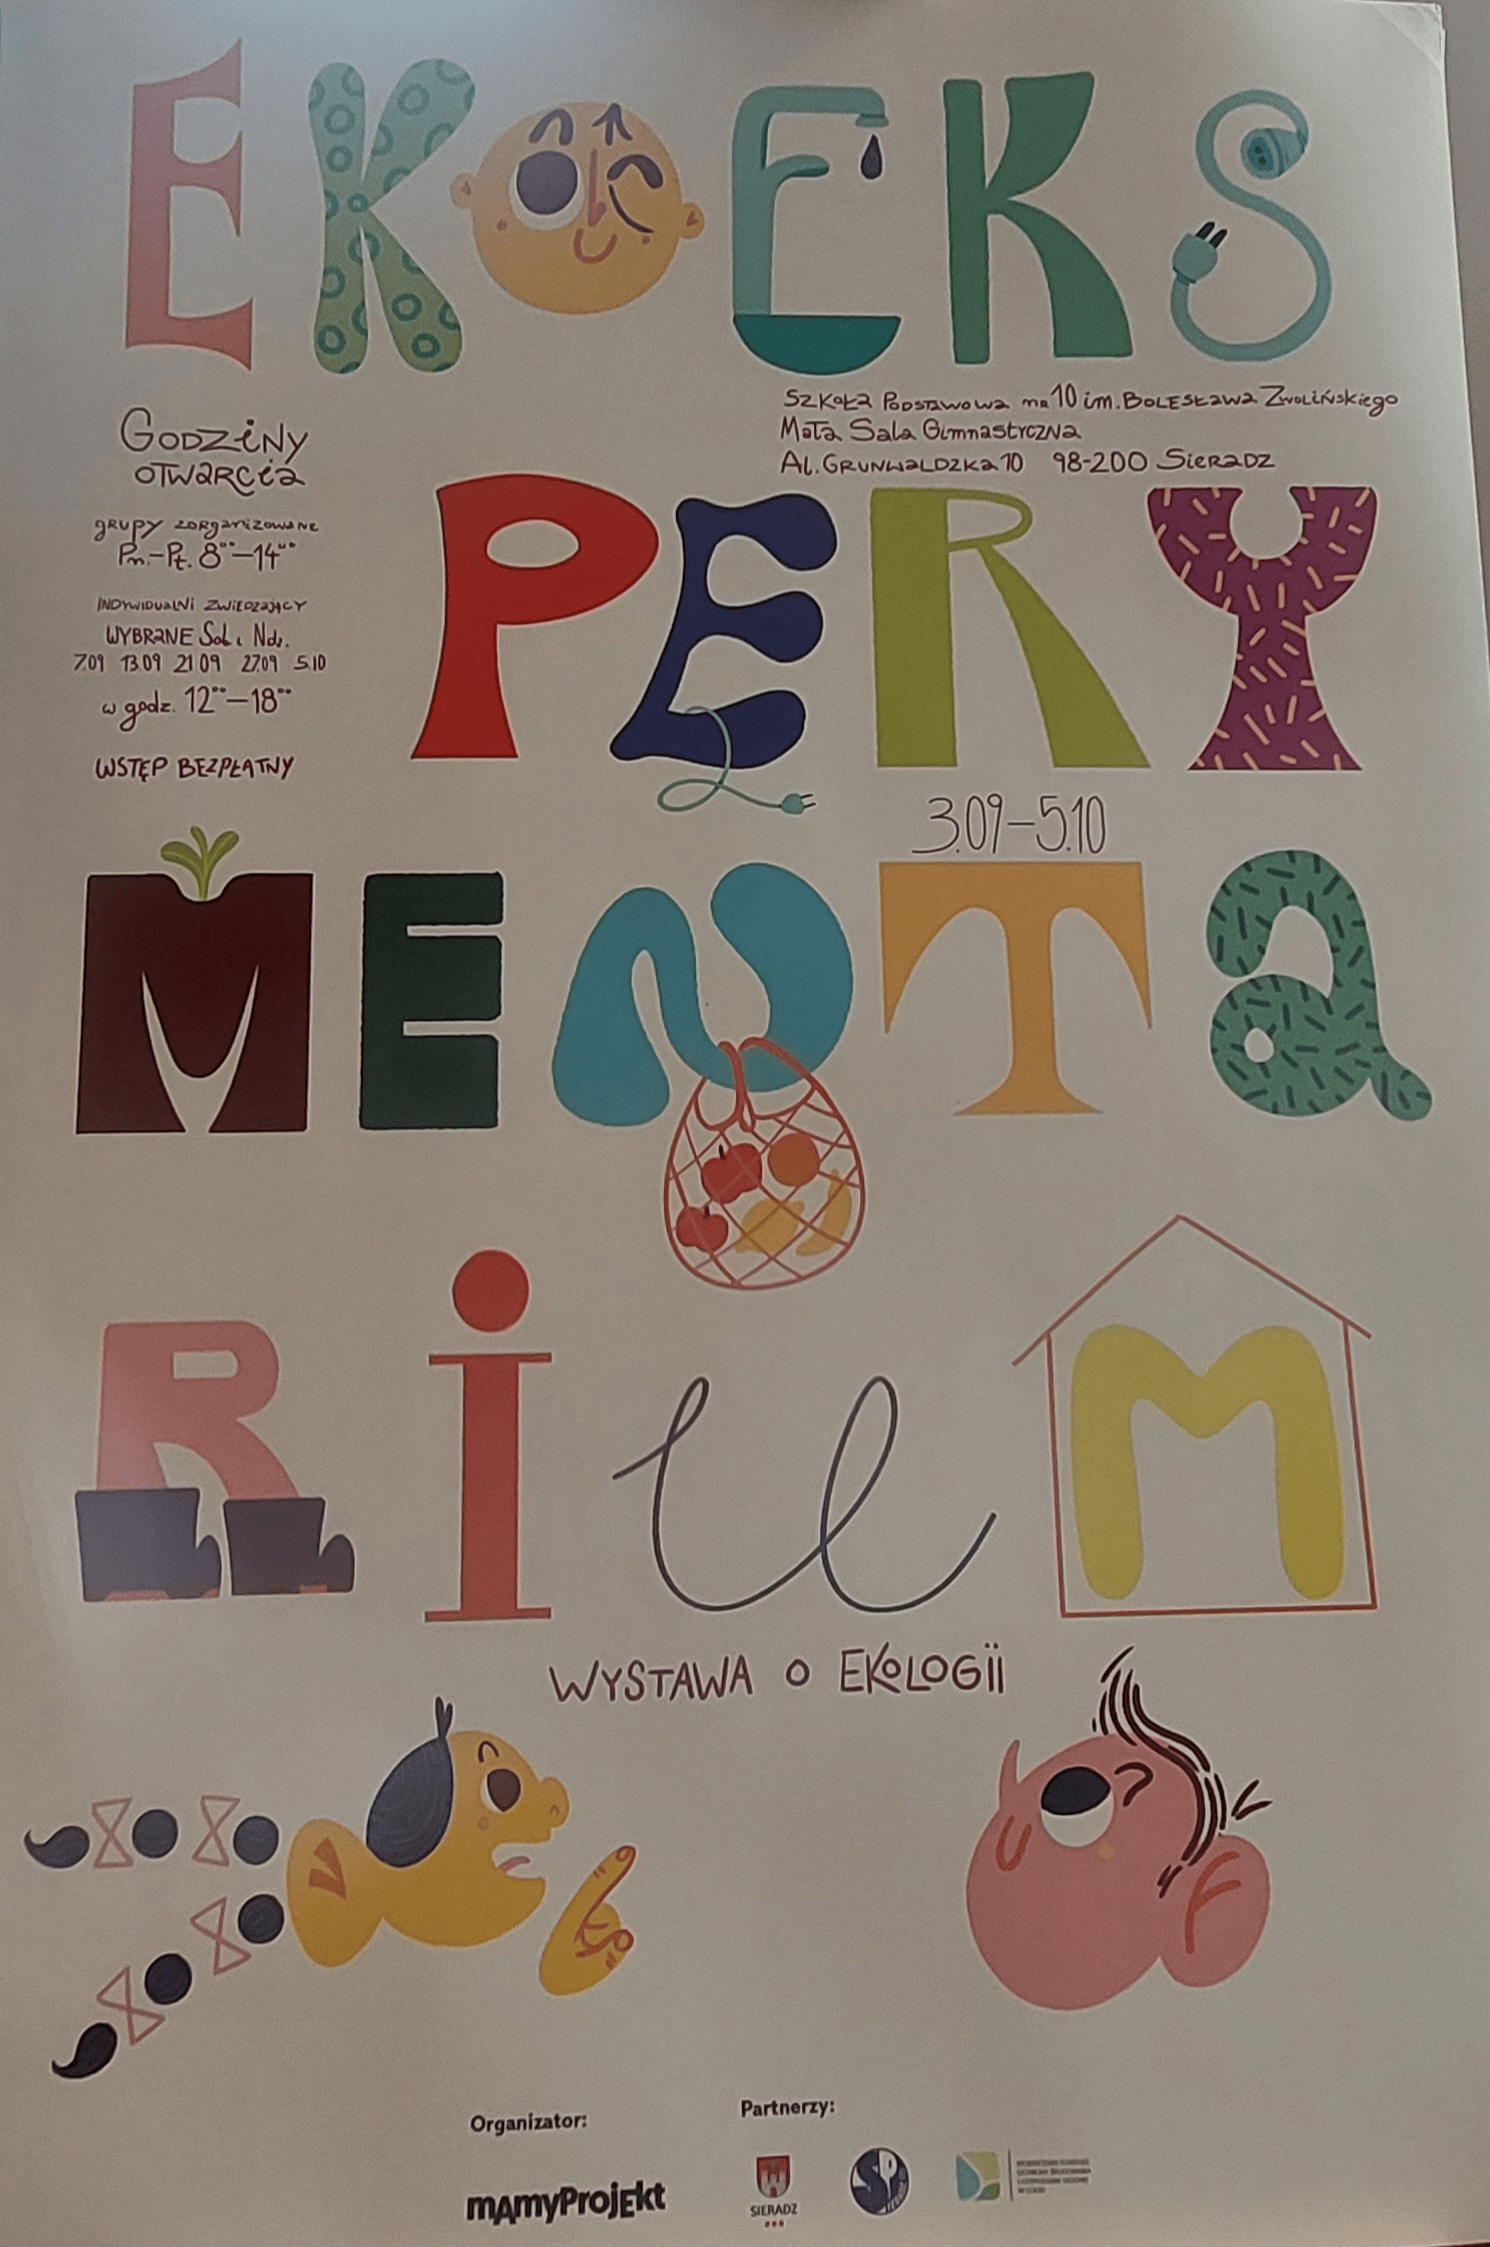 EKOEKS
Szkoła Podstawowa nr 10 im. Bolesława Zwolińskiego
Mała Sala Gimnastyczna
Al. Grunwaldzka 10 98-200 Sieradz
Godziny
otwarcia
grupy zorganizowane
Pn.-Pt. 8⁰⁰–14⁰⁰
Indywidualni zwiedzający
WYBRANE Sob. i Ndz.
7.09 13.09 21.09 27.09 5.10
w godz. 12⁰⁰–18⁰⁰
WSTĘP BEZPŁATNY
PERY
3.09–5.10
MENTA
RiuM
WYSTAWA O EKOLOGII
Organizator:
Partnerzy:
mAmyProjEkt
SIERADZ
SP